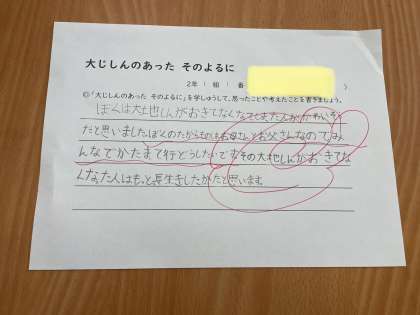 大じしんのあった そのよるに
2年 1 組 番
◎「大じしんのあった そのよるに」を学しゅうして、思ったことや考えたことを書きましょう。
ぼくは大地しんがおきてなくなてしまた人がかわいそう
だと思いました。ぼくのたからものはお母さんとお父さんなのでみ
んなでかたまて行どうしたいですその大地しんがおきてな
くなった人はもっと長生きしたかたと思います